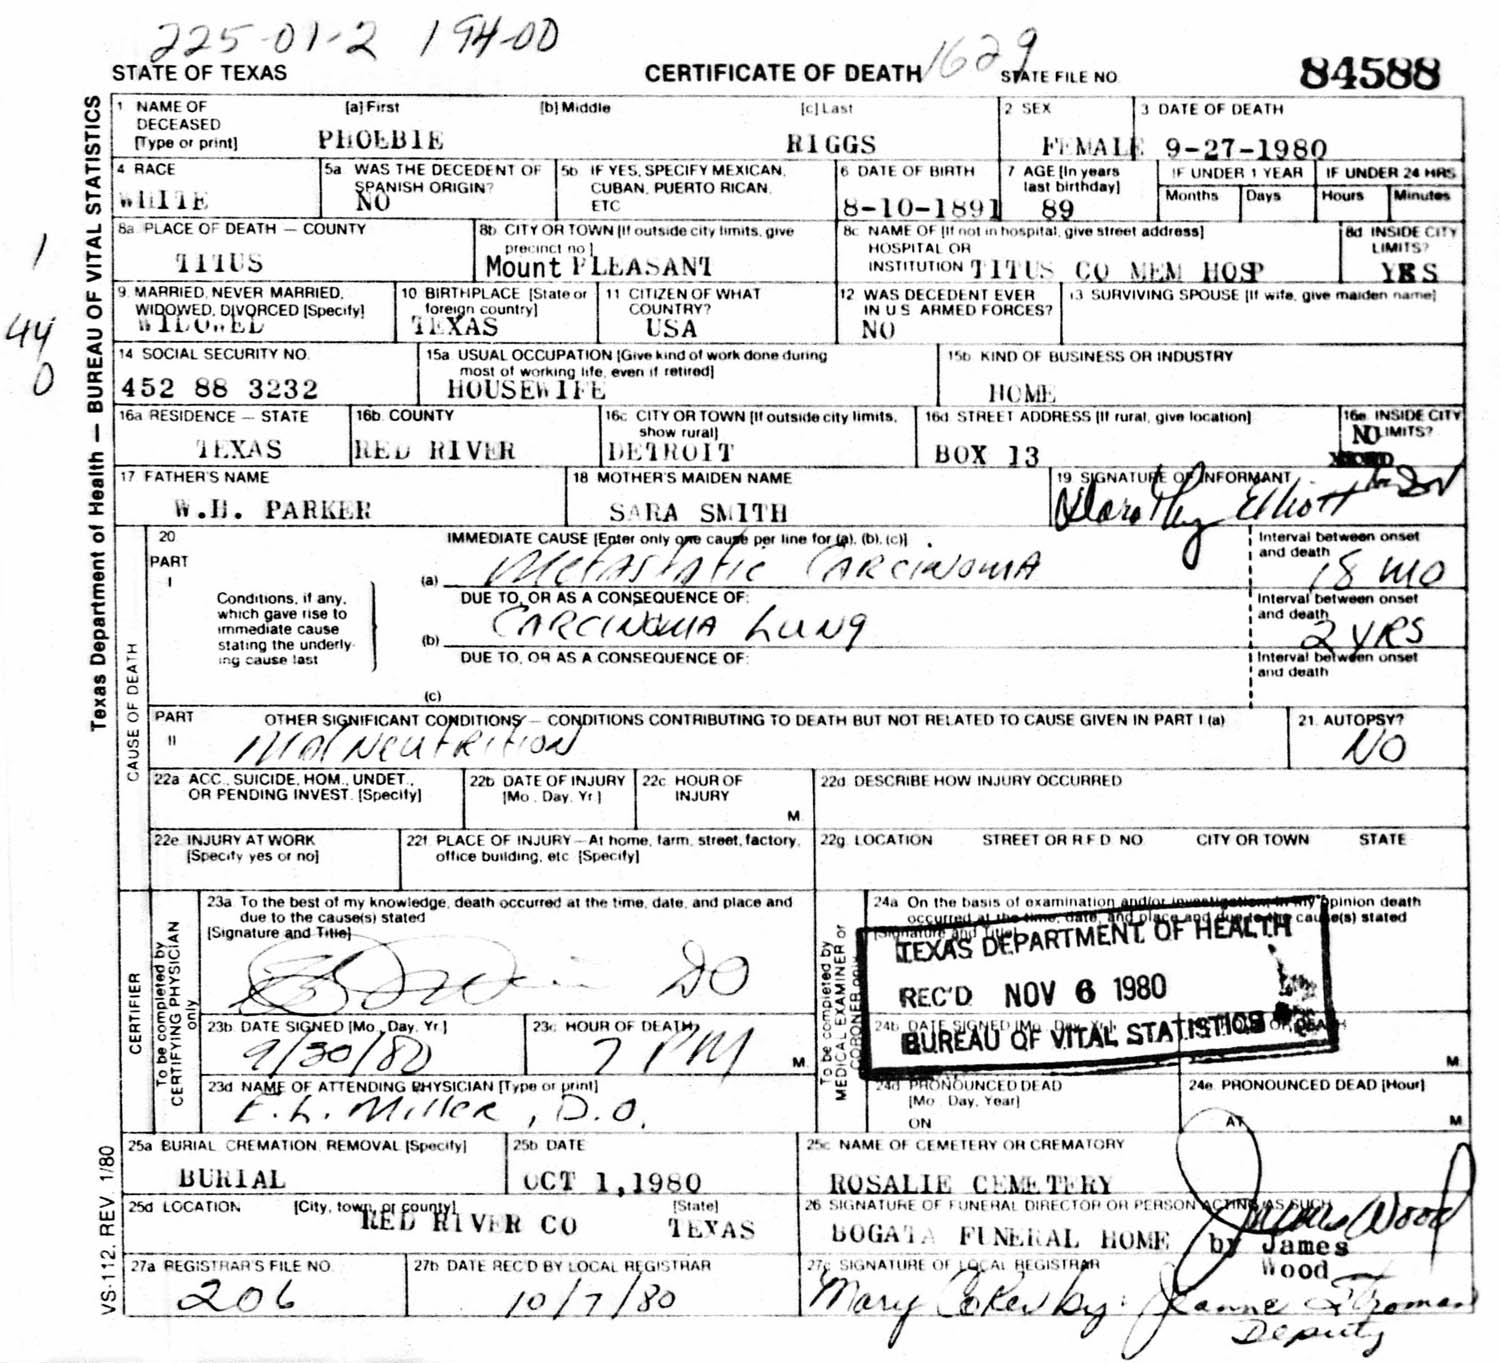 225-01-2 194-00
1629
STATE OF TEXAS CERTIFICATE OF DEATH STATE FILE NO. 84588
Texas Department of Health — BUREAU OF VITAL STATISTICS
1 NAME OF DECEASED [Type or print] [a] First [b] Middle [c] Last
PHOEBIE RIGGS
2 SEX
FEMALE
3 DATE OF DEATH
9-27-1980
4 RACE
WHITE
5a WAS THE DECEDENT OF SPANISH ORIGIN?
NO
5b IF YES, SPECIFY MEXICAN, CUBAN, PUERTO RICAN, ETC
6 DATE OF BIRTH
8-10-1891
7 AGE [In years last birthday]
89
IF UNDER 1 YEAR
Months Days
IF UNDER 24 HRS
Hours Minutes
8a PLACE OF DEATH — COUNTY
TITUS
8b CITY OR TOWN [If outside city limits, give precinct no]
Mount PLEASANT
8c NAME OF [If not in hospital, give street address] HOSPITAL OR INSTITUTION
TITUS CO MEM HOSP
8d INSIDE CITY LIMITS?
YES
1
44
0
9. MARRIED, NEVER MARRIED, WIDOWED, DIVORCED [Specify]
WIDOWED
10 BIRTHPLACE [State or foreign country]
TEXAS
11 CITIZEN OF WHAT COUNTRY?
USA
12 WAS DECEDENT EVER IN U S ARMED FORCES?
NO
13 SURVIVING SPOUSE [If wife, give maiden name]
14 SOCIAL SECURITY NO.
452 88 3232
15a USUAL OCCUPATION [Give kind of work done during most of working life, even if retired]
HOUSEWIFE
15b KIND OF BUSINESS OR INDUSTRY
HOME
16a RESIDENCE — STATE
TEXAS
16b. COUNTY
RED RIVER
16c CITY OR TOWN [If outside city limits, show rural]
DETROIT
16d STREET ADDRESS [If rural, give location]
BOX 13
16e INSIDE CITY LIMITS?
NO
17 FATHER'S NAME
W.H. PARKER
18 MOTHER'S MAIDEN NAME
SARA SMITH
19 SIGNATURE OF INFORMANT
Dorothy Elliott
CAUSE OF DEATH
20 PART I
IMMEDIATE CAUSE [Enter only one cause per line for (a), (b), (c)]
Conditions, if any, which gave rise to immediate cause stating the underlying cause last
(a) Metastatic Carcinoma
Interval between onset and death
18 mo
DUE TO, OR AS A CONSEQUENCE OF:
(b) Carcinoma Lung
Interval between onset and death
2 YRS
DUE TO, OR AS A CONSEQUENCE OF:
(c)
Interval between onset and death
PART II OTHER SIGNIFICANT CONDITIONS — CONDITIONS CONTRIBUTING TO DEATH BUT NOT RELATED TO CAUSE GIVEN IN PART I (a)
Malneutrition
21. AUTOPSY?
NO
22a ACC., SUICIDE, HOM., UNDET., OR PENDING INVEST. [Specify]
22b DATE OF INJURY [Mo, Day, Yr]
22c HOUR OF INJURY
M
22d. DESCRIBE HOW INJURY OCCURRED
22e. INJURY AT WORK [Specify yes or no]
22f. PLACE OF INJURY — At home, farm, street, factory, office building, etc [Specify]
22g. LOCATION STREET OR R F D NO CITY OR TOWN STATE
CERTIFIER
To be completed by CERTIFYING PHYSICIAN only
23a To the best of my knowledge, death occurred at the time, date, and place and due to the cause(s) stated
[Signature and Title]
DO
23b. DATE SIGNED [Mo, Day, Yr]
9/30/80
23c HOUR OF DEATH
7 PM M
23d NAME OF ATTENDING PHYSICIAN [Type or print]
E. L. Miller, D.O.
To be completed by MEDICAL EXAMINER or CORONER only
24a On the basis of examination and/or investigation, in my opinion death occurred at the time, date, and place and due to the cause(s) stated
[Signature and Title]
TEXAS DEPARTMENT OF HEALTH
REC'D NOV 6 1980
BUREAU OF VITAL STATISTICS
24b DATE SIGNED [Mo, Day, Yr]
M
24d PRONOUNCED DEAD [Mo, Day, Year]
ON
24e. PRONOUNCED DEAD [Hour]
AT M
25a BURIAL, CREMATION, REMOVAL [Specify]
BURIAL
25b DATE
OCT 1,1980
25c NAME OF CEMETERY OR CREMATORY
ROSALIE CEMETERY
25d LOCATION [City, town, or county] [State]
RED RIVER CO TEXAS
26 SIGNATURE OF FUNERAL DIRECTOR OR PERSON ACTING AS SUCH
BOGATA FUNERAL HOME by James Wood
James Wood
27a REGISTRAR'S FILE NO.
206
27b DATE REC'D BY LOCAL REGISTRAR
10/7/80
27c SIGNATURE OF LOCAL REGISTRAR
Mary by: Jeanne Stroman
Deputy
VS-112, REV 1/80